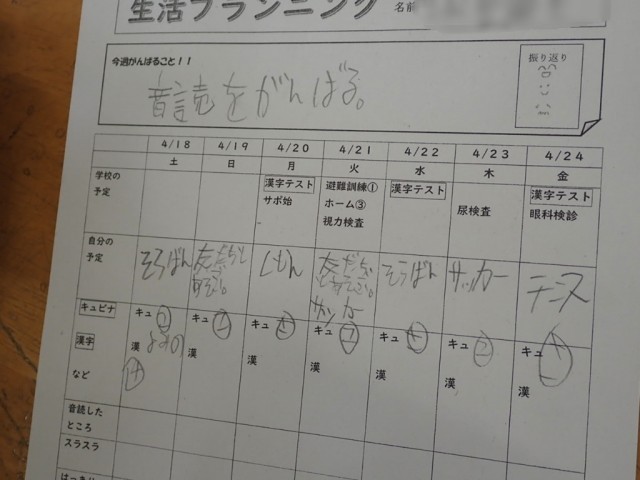 生活プランニング
名前
今週がんばること！！
音読をがんばる。
振り返り
4/18 4/19 4/20 4/21 4/22 4/23 4/24
土 日 月 火 水 木 金
学校の
予定
漢字テスト
サポ始
避難訓練①
ホーム③
視力検査
漢字テスト
尿検査
漢字テスト
眼科検診
自分の
予定
そろばん
友だちと
あそぶ。
くもん
友だち
とあそぶ。
サッカー
そろばん
サッカー
テニス
キュビナ
漢字
など
キュ
漢
キュ
漢
キュ
漢
キュ ⑦
漢
キュ
漢
キュ ②
漢
キュ
漢
音読した
ところ
スラスラ